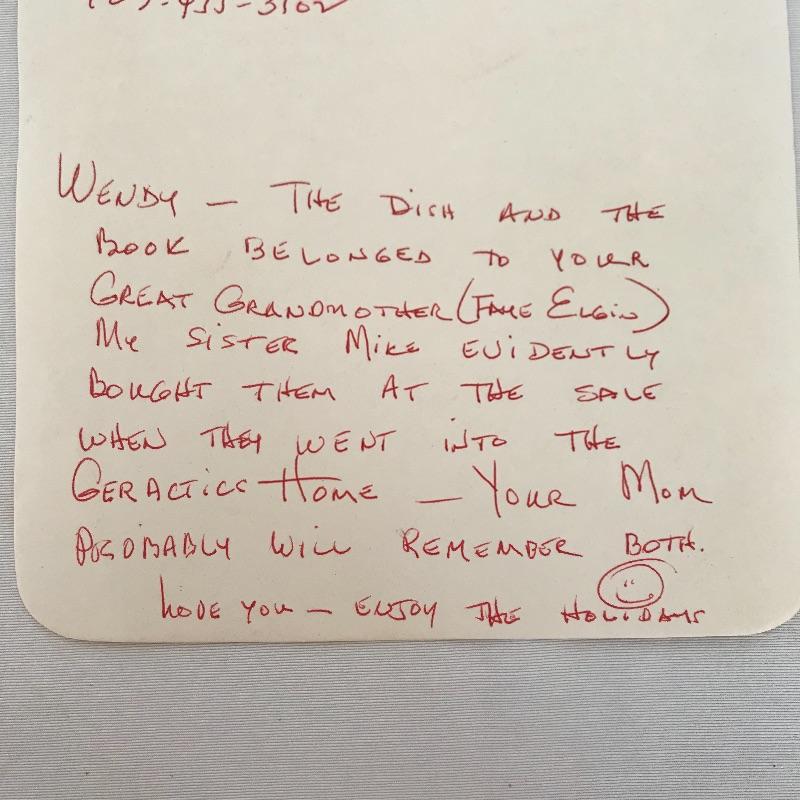 Wendy — The Dish and the
Book belonged to your
Great Grandmother (Faye Elgin)
My sister Mike evidently
bought them at the sale
when they went into the
Geractics Home — Your Mom
probably will remember both.
Love you — enjoy the holidays